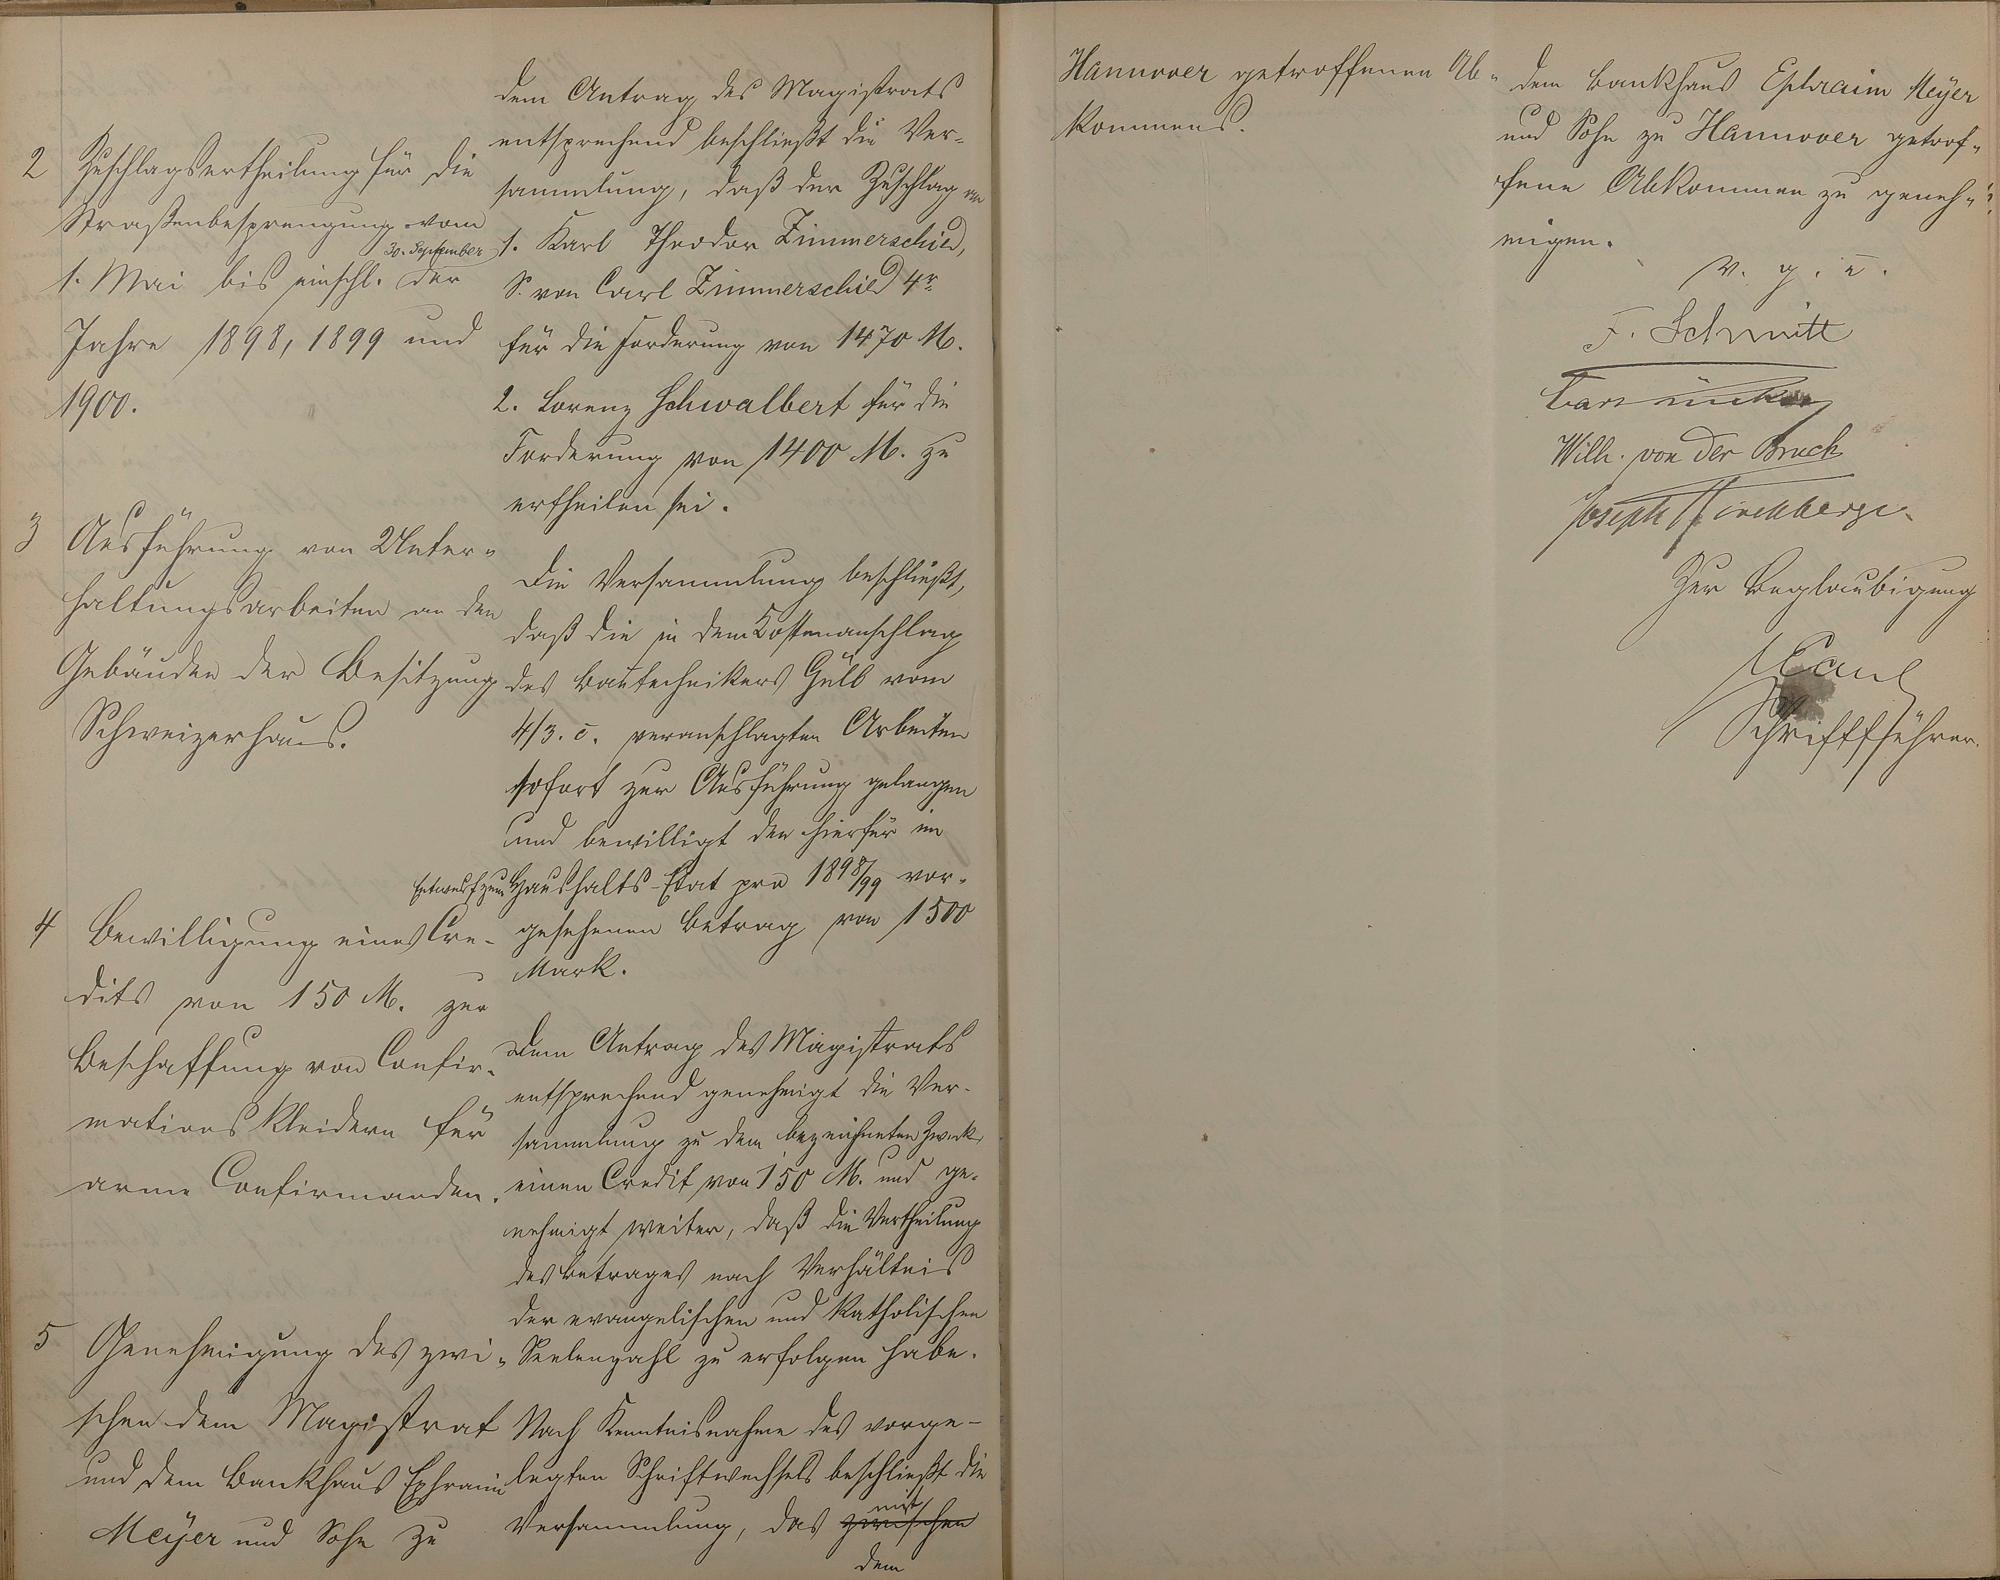 2 Zuschlagsertheilung für die
Straßenbesprengung vom
30. September
1. Mai bis einschl. der
Jahre 1898, 1899 und
1900.
dem Antrag des Magistrats
entsprechend beschließt die Ver-
sammlung, daß der Zuschlag an
1. Karl Theodor Zimmerschied,
S. von Carl Zimmerschied 4r
für die Forderung von 1470 M.
2. Lorenz Schwalbert für die
Forderung von 1400 M. zu
ertheilen sei.
3 Ausführung von Unter-
haltungsarbeiten an den
Gebäuden der Besitzung
Schweizerhaus.
Die Versammlung beschließt,
daß die in dem Kostenanschlag
des Bautechnikers Gülb vom
4/3. c. veranschlagten Arbeiten
sofort zur Ausführung gelangen
und bewilligt den hierfür im
Entwurf zum Haushalts-Etat pro 1898/99 vor-
gesehenen Betrag von 1500
Mark.
4 Bewilligung eines Cre-
dits von 150 M. zur
Beschaffung von Confir-
mationskleidern für
arme Confirmanden.
Dem Antrag des Magistrats
entsprechend genehmigt die Ver-
sammlung zu dem bezeichneten Zweck
einen Credit von 150 M. und ge-
nehmigt weiter, daß die Vertheilung
des Betrages nach Verhältnis
der evangelischen und katholischen
Seelenzahl zu erfolgen habe.
5 Genehmigung des zwi-
schen dem Magistrat
und dem Bankhaus Ephraim
Meyer und Sohn zu
Nach Kenntnisnahme des vorge-
legten Schriftwechsels beschließt die
mit
Versammlung, das zwischen
dem
Hannover getroffenen Ab-
kommens.
dem Bankhaus Ephraim Meyer
und Sohn zu Hannover getrof-
fene Abkommen zu geneh-
migen.
v. g. u.
F. Schmitt
Wilh. von der Bruch
Joseph Hirchberger
Zur Beglaubigung
Schriftführer.